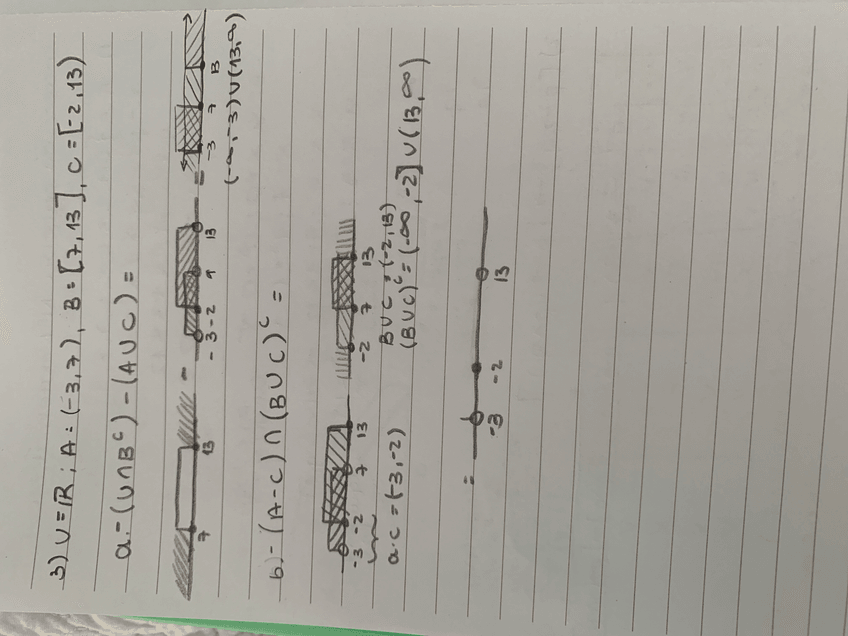 3) U=ℝ; A=(-3,7), B=[7,13], C=[-2,13)
a.-(U∩Bᶜ)-(A∪C)=
7 13 - -3 -2 7 13 = -3 7 13
(-∞,-3)∪(13,∞)
b.-(A-C)∩(B∪C)ᶜ=
-3 -2 7 13 -2 7 13
a-c=(-3,-2) B∪C=(-2,13)
(B∪C)ᶜ=(-∞,-2]∪(13,∞)
= -3 -2 13